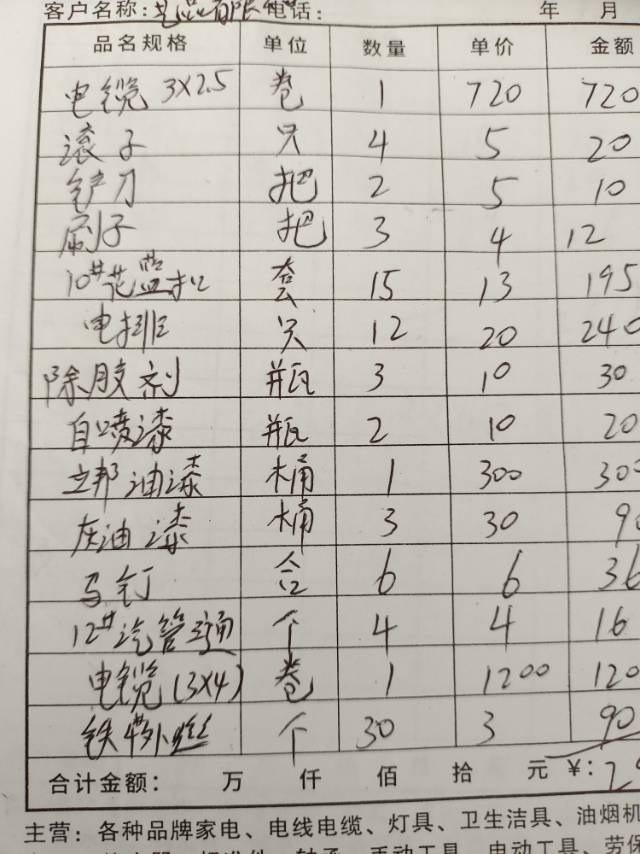 客户名称: 电话: 年 月
品名规格 单位 数量 单价 金额
电缆 3×2.5 卷 1 720 720
滚子 只 4 5 20
铲刀 把 2 5 10
刷子 把 3 4 12
10#花蓝扣 套 15 13 195
电排 只 12 20 240
除胶剂 瓶 3 10 30
自喷漆 瓶 2 10 20
立邦油漆 桶 1 300 300
灰油漆 桶 3 30 90
马钉 合 6 6 36
12#汽管三通 个 4 4 16
电缆(3×4) 卷 1 1200 120
铁 外丝 个 30 3 90
合计金额: 万 仟 佰 拾 元 ¥: 2
主营: 各种品牌家电、电线电缆、灯具、卫生洁具、油烟机
标准件、轴承、手动工具、电动工具、劳保